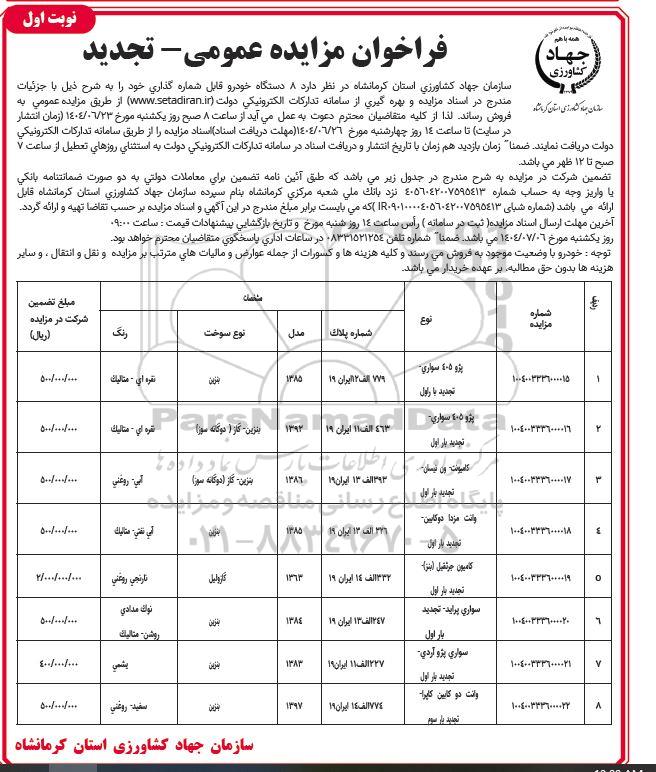 نوبت اول
همه با هم
جهاد
کشاورزی
سازمان جهاد کشاورزی استان کرمانشاه
فراخوان مزایده عمومی- تجدید
سازمان جهاد کشاورزي استان کرمانشاه در نظر دارد ۸ دستگاه خودرو قابل شماره گذاري خود را به شرح ذیل با جزئیات
مندرج در اسناد مزایده و بهره گیري از سامانه تدارکات الکترونیکي دولت (www.setadiran.ir) از طریق مزایده عمومي به
فروش رساند. لذا از کلیه متقاضیان محترم دعوت به عمل مي آید از ساعت ۸ صبح روز یکشنبه مورخ ۱٤۰٤/۰٦/۲۳ (زمان انتشار
در سایت) تا ساعت ۱٤ روز چهارشنبه مورخ ۱٤۰٤/۰٦/۲٦(مهلت دریافت اسناد)اسناد مزایده را از طریق سامانه تدارکات الکترونیکي
دولت دریافت نمایند. ضمنا" زمان بازدید هم زمان با تاریخ انتشار و دریافت اسناد در سامانه تدارکات الکترونیکي دولت به استثناي روزهاي تعطیل از ساعت ۷
صبح تا ۱۲ ظهر مي باشد.
تضمین شرکت در مزایده به شرح مندرج در جدول زیر مي باشد که طبق آئین نامه تضمین براي معاملات دولتي به دو صورت ضمانتنامه بانکي
یا واریز وجه به حساب شماره ٤۰٥٦۰٤۲۰۰۷٥۹٥٤۱۳ نزد بانك ملي شعبه مرکزي کرمانشاه بنام سپرده سازمان جهاد کشاورزي استان کرمانشاه قابل
ارائه مي باشد (شماره شبای IR۰۹۰۱۰۰۰۰٤۰٥٦۰٤۲۰۰۷٥۹٥٤۱۳ )که مي بایست برابر مبلغ مندرج در این آگهي و اسناد مزایده بر حسب تقاضا تهیه و ارائه گردد.
آخرین مهلت ارسال اسناد مزایده( ثبت در سامانه ) رأس ساعت ۱٤ روز شنبه مورخ و تاریخ بازگشایي پیشنهادات قیمت : ساعت ۰۹:۰۰
روز یکشنبه مورخ ۱٤۰٤/۰۷/۰٦ مي باشد. ضمنا" شماره تلفن ۰۸۳۳۱٥۲۱۲٥٤ در ساعات اداري پاسخگوي متقاضیان محترم خواهد بود.
توجه : خودرو با وضعیت موجود به فروش مي رسد و کلیه هزینه ها و کسورات از جمله عوارض و مالیات هاي مترتب بر مزایده و نقل و انتقال ، و سایر
هزینه ها بدون حق مطالبه، بر عهده خریدار مي باشد.
ردیف شماره مزایده مشخصات مبلغ تضمین شرکت در مزایده (ریال)
نوع شماره پلاك مدل نوع سوخت رنگ
۱ ۱۰۰٤۰۰۳۳۳٦۰۰۰۰۱٥ پژو ٤۰٥ سواري- تجدید با راول ۷۷۹ الف۱۲ایران ۱۹ ۱۳۸٥ بنزین نقره اي - متالیك ٥۰۰/۰۰۰/۰۰۰
۲ ۱۰۰٤۰۰۳۳۳٦۰۰۰۰۱٦ پژو ٤۰٥ سواري- تجدید بار اول ٤٦۳ الف۱۱ ایران ۱۹ ۱۳۹۲ بنزین- گاز ( دوگانه سوز) نقره اي - متالیك ٥۰۰/۰۰۰/۰۰۰
۳ ۱۰۰٤۰۰۳۳۳٦۰۰۰۰۱۷ کامیونت- ون نیسان- تجدید بار اول ۳۹۳الف ۱۳ ایران۱۹ ۱۳۸٦ بنزین- گاز (دوگانه سوز) آبي- روغني ٥۰۰/۰۰۰/۰۰۰
٤ ۱۰۰٤۰۰۳۳۳٦۰۰۰۰۱۸ وانت مزدا دوکابین- تجدید بار اول ۳۲٦ الف ۱۳ ایران ۱۹ ۱۳۸٥ بنزین آبي نفتي- متالیك ٥۰۰/۰۰۰/۰۰۰
٥ ۱۰۰٤۰۰۳۳۳٦۰۰۰۰۱۹ کامیون جرثقیل (بنز)- تجدید بار اول ۳۳۲الف ۱٤ ایران ۱۹ ۱۳٦۳ گازوئیل نارنجي روغني ۲/۰۰۰/۰۰۰/۰۰۰
٦ ۱۰۰٤۰۰۳۳۳٦۰۰۰۰۲۰ سواري پراید- تجدید بار اول ۲٤۷الف۱۳ ایران ۱۹ ۱۳۸٤ بنزین نوك مدادي روشن- متالیك ٥۰۰/۰۰۰/۰۰۰
۷ ۱۰۰٤۰۰۳۳۳٦۰۰۰۰۲۱ سواري پژو آردي- تجدید بار اول ۲۲۷الف۱۱ ایران۱۹ ۱۳۸۳ بنزین یشمي ٤۰۰/۰۰۰/۰۰۰
۸ ۱۰۰٤۰۰۳۳۳٦۰۰۰۰۲۲ وانت دو کابین کاپرا- تجدید بار سوم ۷۷٤الف۱٤ ایران۱۹ ۱۳۹۷ بنزین سفید- روغني ٥۰۰/۰۰۰/۰۰۰
ParsNamadData
پایگاه اطلاع رسانی مناقصه و مزایده
۰۲۱-۸۸۳٤۹٦۷۰-٥
سازمان جهاد کشاورزی استان کرمانشاه